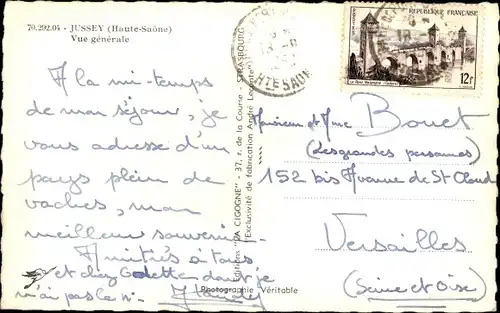 70.292.04 - JUSSEY (Haute-Saône)
Vue générale
A la mi-temps
de mon séjour, je
vous adresse d'un
pays plein de
vaches, mon
meilleur souvenir.
Amitiés à tous
et chez Odette dont je
n'ai pas le n°.
Editions "LA CIGOGNE" - 37, r. de la Course - STRASBOURG
(Exclusivité de fabrication André Leconte)
Photographie Véritable
RÉPUBLIQUE FRANÇAISE
12F
HTE SAONE
Monsieur et Mme Bouet
(les grandes personnes)
152 bis Avenue de St Cloud
Versailles
(Seine et Oise)